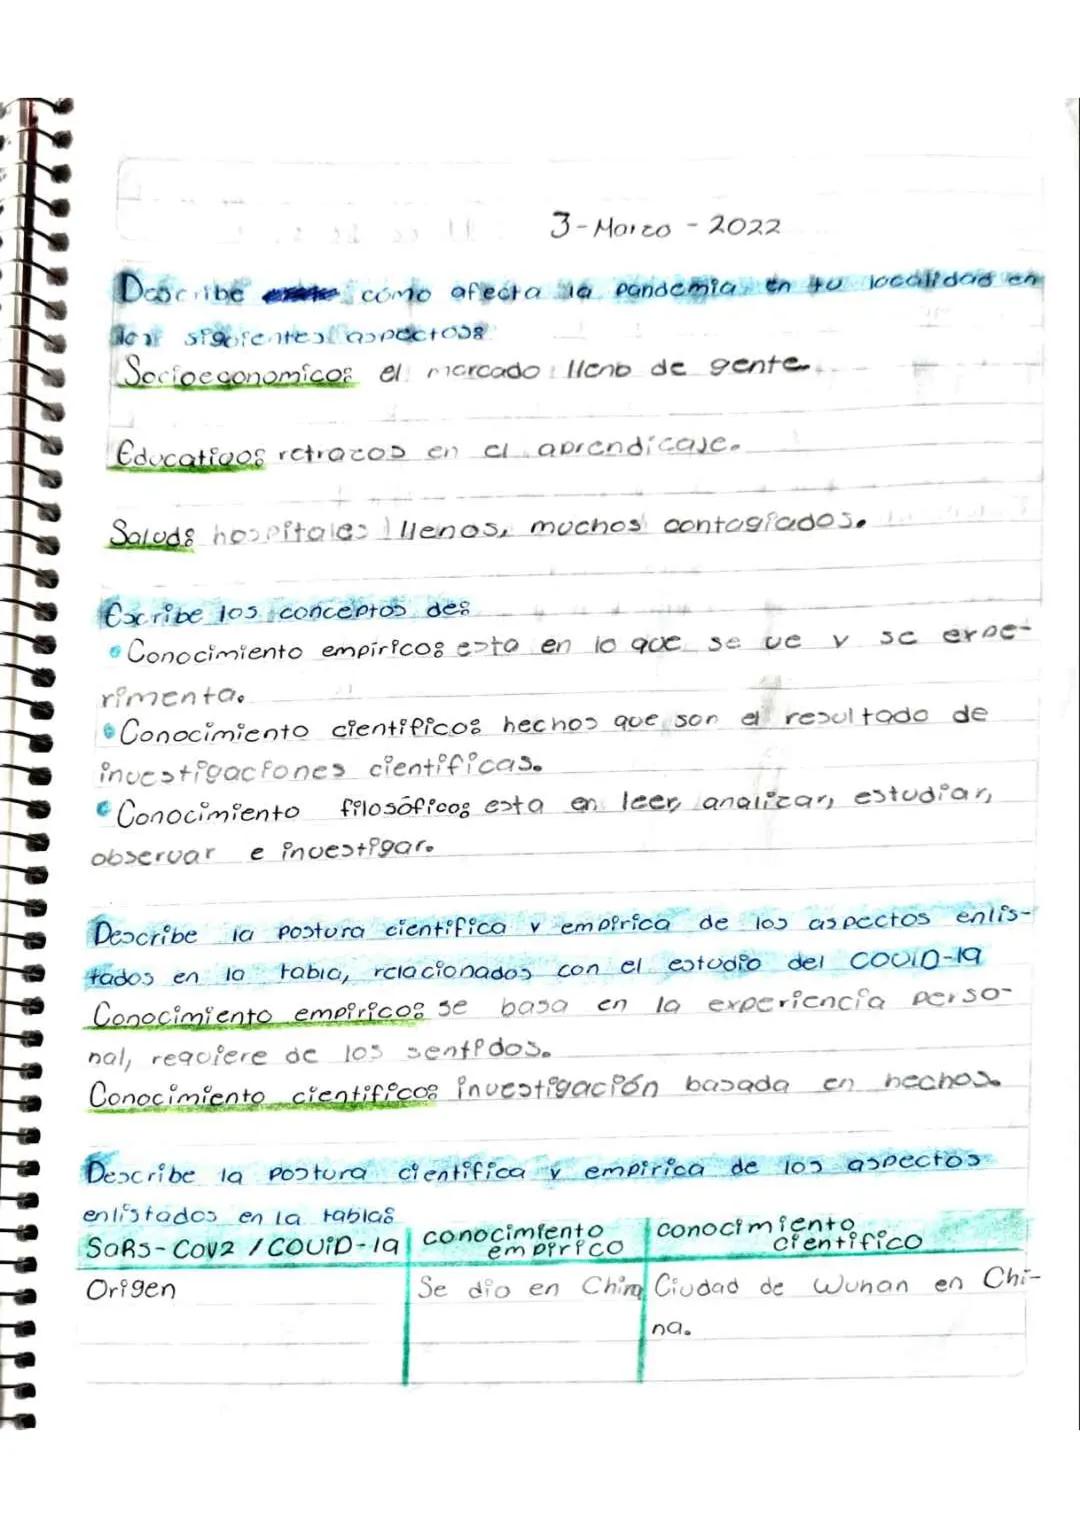 3-Marzo-2022
Describe cómo afecta la pandemia en tu localidad en
los siguientes aspectos:
Socioeconomico: el mercado lleno de gente.
Educativo: retrazos en el aprendicaje.
Salud: hospitales llenos, muchos contagiados.
Escribe los conceptos de:
• Conocimiento empírico: esta en lo que se ve y se expe-
rimenta.
• Conocimiento científico: hechos que son el resultado de
investigaciones científicas.
• Conocimiento filosófico: esta en leer, analizar, estudiar,
observar e investigar.
Describe la postura científica y empírica de los aspectos enlis-
tados en la tabla, relacionados con el estudio del COVID-19
Conocimiento empírico: se basa en la experiencia perso-
nal, requiere de los sentidos.
Conocimiento científico: investigación basada en hechos.
Describe la postura científica y empírica de los aspectos
enlistados en la tabla:
SARS-COV2 / COVID-19 conocimiento empírico conocimiento científico
Origen Se dio en China Ciudad de Wuhan en Chi-
na.